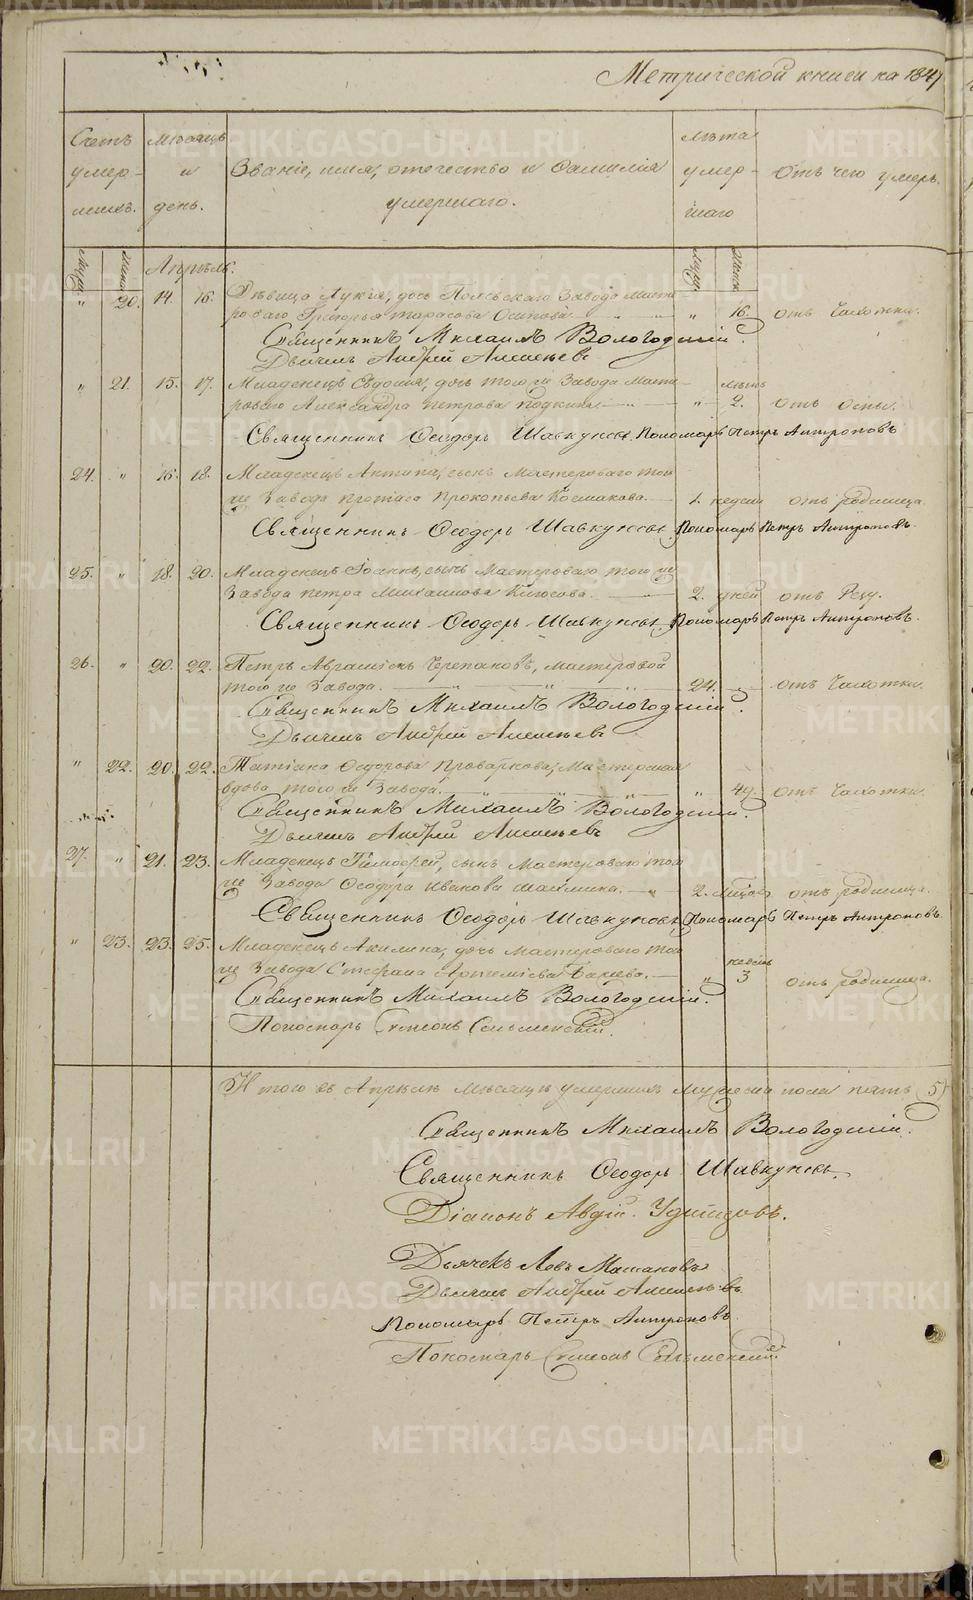 Метрической книги на 1847
Счетъ умер- шихъ.
Мѣсяцъ и день.
Званіе, имя, отечество и фамилія умершаго.
лѣта умер- шаго
Отъ чего умеръ.
Муж. Женс. Апрѣль. Муж. Женск.
" 20. 14. 16. Дѣвица Лукія, дочь Полевскаго Завода Масте-
роваго Григорья Тарасова Осипова " 16. отъ Чахотки.
Священникъ Михаилъ Вологодскій.
Дьячекъ Андрей Алексѣевъ
" 21. 15. 17. Младенецъ Евдокия, дочь того же Завода Масте- лѣтъ
роваго Александра Петрова " 2. отъ Оспы.
Священникъ Ѳеодоръ Шавкуновъ. Пономарь Петръ Антроповъ
24. " 16. 18. Младенецъ Антипа, сынъ Мастероваго того
же Завода Протаса Прокопьева 1. недели отъ родимца.
Священникъ Ѳеодоръ Шавкуновъ. Пономарь Петръ Антроповъ.
25. " 18. 20. Младенецъ Іоаннъ, сынъ Мастероваго того же
Завода Петра Михаилова 2. дней отъ Резу.
Священникъ Ѳеодоръ Шавкуновъ. Пономарь Петръ Антроповъ.
26. " 20. 22. Петръ Черепановъ, Мастеровой
того же Завода. 24. отъ Чахотки.
Священникъ Михаилъ Вологодскій.
Дьячекъ Андрей Алексѣевъ
" 22. 20. 22. Татіана Ѳедорова Мастерская
вдова того же Завода. " 49. отъ Чахотки.
Священникъ Михаилъ Вологодскій.
Дьячекъ Андрей Алексѣевъ
27. " 21. 23. Младенецъ Тимоѳей, сынъ Мастероваго того
же Завода Ѳеодора Иванова 2. отъ родимца.
Священникъ Ѳеодоръ Шавкуновъ. Пономарь Петръ Антроповъ.
" 23. 23. 25. Младенецъ Акилина, дочь Мастероваго того недѣль
же Завода Стефана Артеміева " 3 отъ родимца.
Священникъ Михаилъ Вологодскій.
Пономарь Симеонъ
Итого въ Апрѣлѣ Мѣсяцѣ умершихъ Мужеска пола пять (5)
Священникъ Михаилъ Вологодскій.
Священникъ Ѳеодоръ Шавкуновъ.
Діаконъ Авдій
Дьячекъ Левъ
Дьячекъ Андрей Алексѣевъ
Пономарь Петръ Антроповъ
Пономарь Симеонъ
METRIKI.GASO-URAL.RU